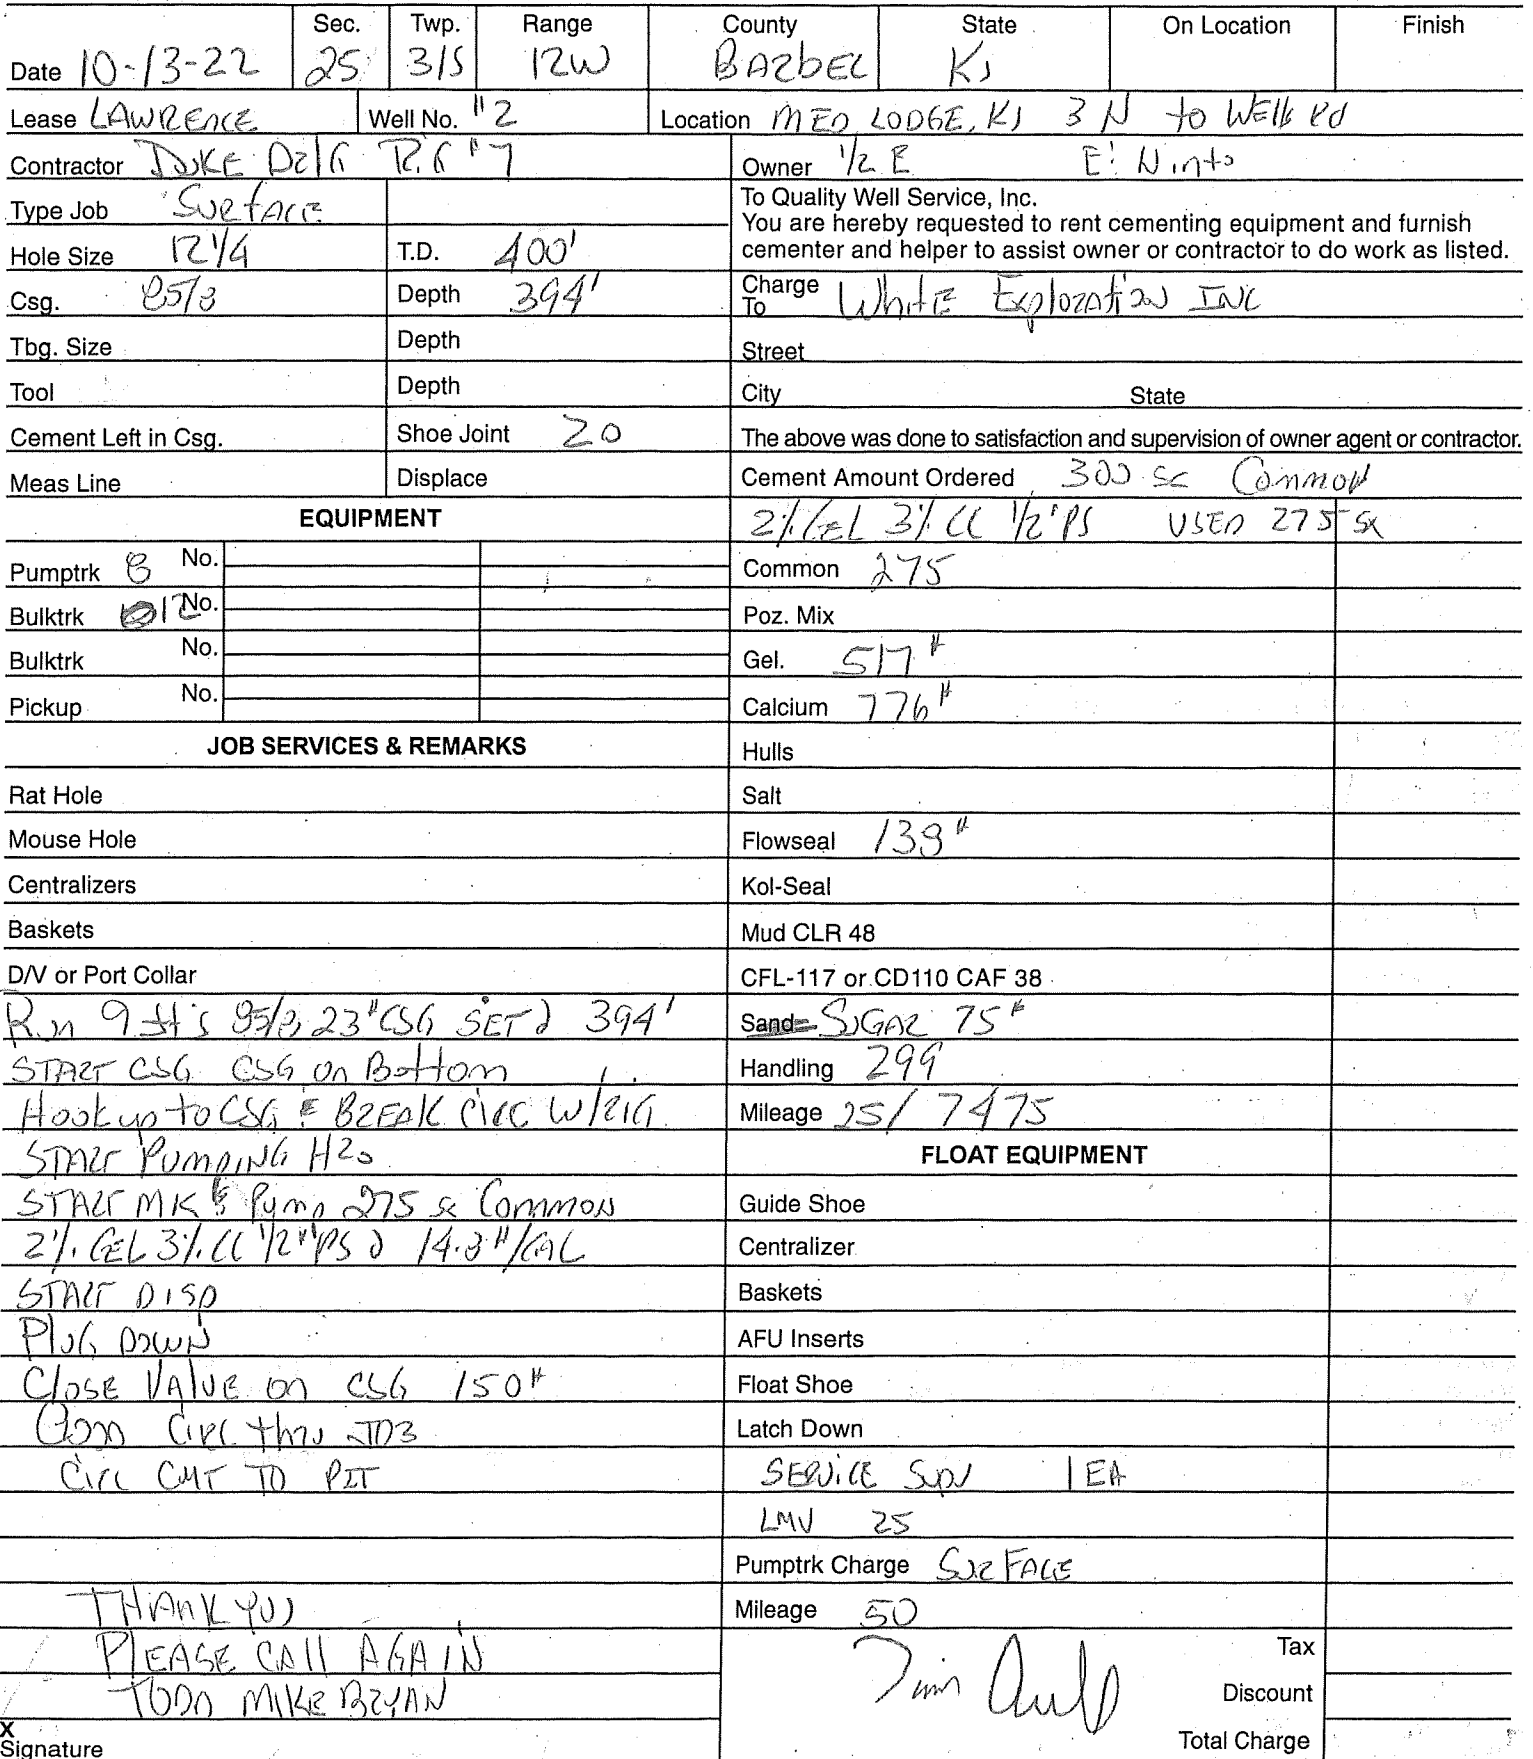 Sec. Twp. Range County State On Location Finish
Date 10-13-22 25 31S 12W BARBER KS
Lease LAWRENCE Well No. #2 Location MED LODGE, KS 3 N to WElls Rd
Contractor DUKE Drlg Rig #7 Owner 1/2 E E: N into
To Quality Well Service, Inc.
You are hereby requested to rent cementing equipment and furnish
cementer and helper to assist owner or contractor to do work as listed.
Type Job SurfacE
Hole Size 12 1/4 T.D. 400'
Csg. 8 5/8 Depth 394' Charge To WhitE Exploration INC
Tbg. Size Depth Street
Tool Depth City State
Cement Left in Csg. Shoe Joint 20 The above was done to satisfaction and supervision of owner agent or contractor.
Meas Line Displace Cement Amount Ordered 300 sx Common
EQUIPMENT 2% GEL 3% CC 1/2# PS USED 275 sx
Pumptrk 8 No. Common 275
Bulktrk 12 No. Poz. Mix
Bulktrk No. Gel. 517#
Pickup No. Calcium 776#
JOB SERVICES & REMARKS Hulls
Rat Hole Salt
Mouse Hole Flowseal 138#
Centralizers Kol-Seal
Baskets Mud CLR 48
D/V or Port Collar CFL-117 or CD110 CAF 38
Run 9 Jt's 8 5/8 23# CSG SET @ 394' Sand SUGAR 75#
START CSG CSG on Bottom Handling 299
Hook up to CSG & BREAK Circ W/RIG Mileage 25/ 7475
START PUMPING H2O FLOAT EQUIPMENT
START MIX & Pump 275 sx Common Guide Shoe
2% GEL 3% CC 1/2# PS @ 14.8#/GAL Centralizer
START DISP Baskets
Plug DOWN AFU Inserts
Close VAlvE on CSG 150# Float Shoe
Good Circ thru JOB Latch Down
Circ CMT TO PIT SERVICE Supv 1 EA
LMV 25
Pumptrk Charge SurFACE
THANK YOU Mileage 50
PLEASE CAll AGAIN Tax
TODD MIKE BRYAN Discount
X
Signature Total Charge